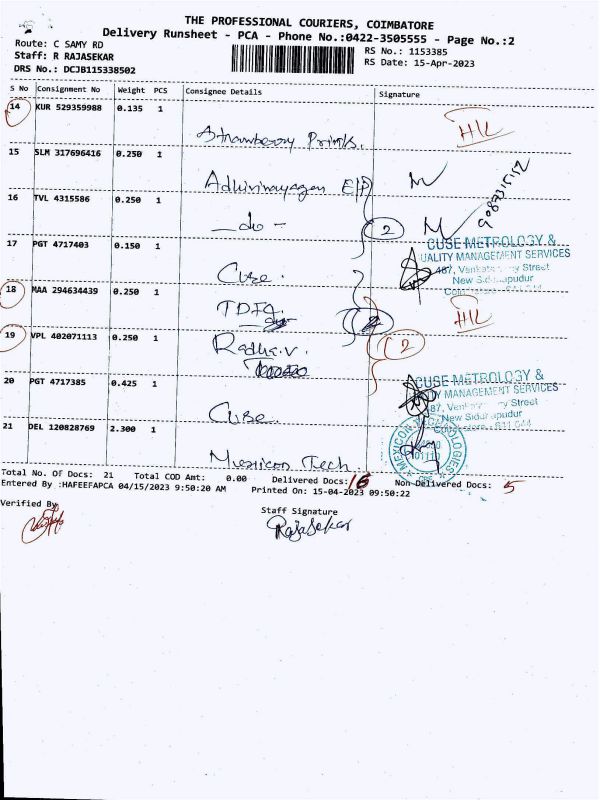 THE PROFESSIONAL COURIERS, COIMBATORE
Delivery Runsheet - PCA - Phone No.:0422-3505555 - Page No.:2
Route: C SAMY RD
RS No.: 1153385
Staff: R RAJASEKAR
RS Date: 15-Apr-2023
DRS No.: DCJB115338502
S No Consignment No Weight PCS Consignee Details Signature
14 KUR 529359988 0.135 1
H/L
Strawberry Prints.
15 SLM 317696416 0.250 1
Adhivinayagan E/P
16 TVL 4315586 0.250 1
9087315152
- do - 2
17 PGT 4717403 0.150 1
CUSE METROLOGY &
UALITY MANAGEMENT SERVICES
487, Street
New
Cuse.
18 MAA 294634439 0.250 1
H/L
TDFC
19 VPL 402071113 0.250 1
Radha.v. 2
20 PGT 4717385 0.425 1
CUSE METROLOGY &
TY MANAGEMENT SERVICES
87, Street
New Siddhapudur
641 044
Cube.
21 DEL 120828769 2.300 1
MEXICON TECHNOLOGIES
CBE
Mexicon Tech.
Total No. Of Docs: 21 Total COD Amt: 0.00 Delivered Docs: 16 Non-Delivered Docs: 5
Entered By :HAFEEFAPCA 04/15/2023 9:50:20 AM Printed On: 15-04-2023 09:50:22
Verified By
Staff Signature
Rajasekar